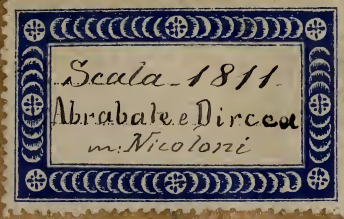 Scala - 1811
Abrabale e Dircea
m: Nicolini